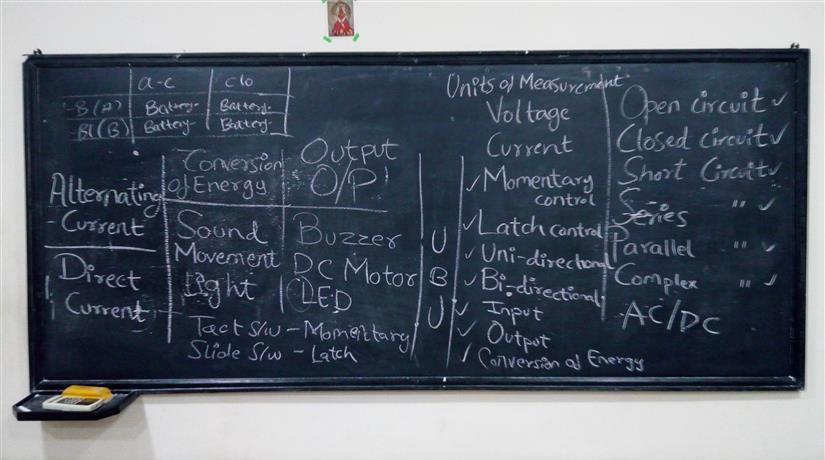 a-c clo
B(A) Battery. Battery.
Bl(B) Battery Battery
Alternating
Current
Direct
Current
Conversion
of Energy
Output
O/P
Sound Buzzer
Movement DC Motor
Light LED
Tact S/w - Momentary
Slide S/w - Latch
U
B
U
Units of Measurement
Voltage
Current
✓ Momentary
control
✓ Latch control
✓ Uni-directional
✓ Bi-directional
✓ Input
✓ Output
✓ Conversion of Energy
Open circuit ✓
Closed circuit ✓
Short Circuit ✓
Series " ✓
Parallel " ✓
Complex " ✓
AC/DC